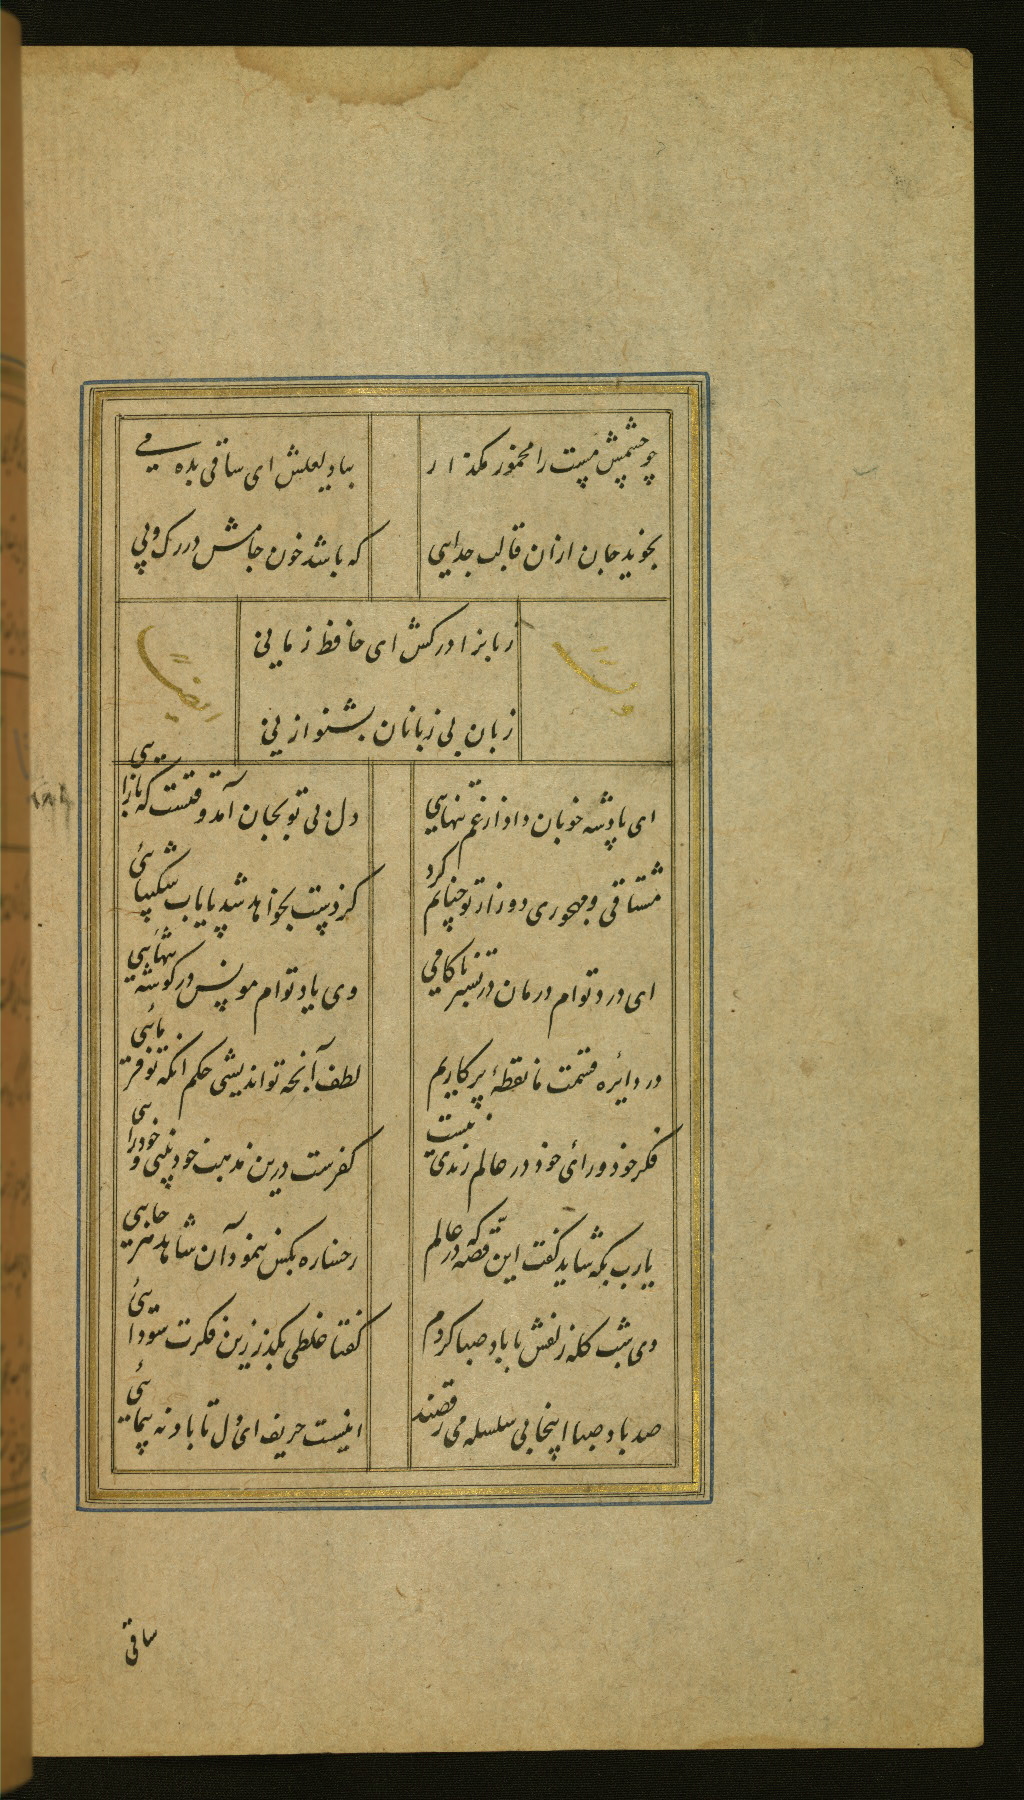 چو چشمش مست را مخمور مگذار
بیاد لعلش ای ساقی بده می
بجوید جان ازان قالب جدایی
که باشد خون جامش در رگ و پی
زبانرا درکش ای حافظ زمانی
زبان بی زبانان بشنو از نی
وله
ایضا
ای پادشه خوبان داد از غم تنهایی
دل بی تو بجان آمد وقتست که بازآیی
مشتاقی و مهجوری دور از تو چنانم کرد
کز دست بخواهد شد پایاب شکیبائی
ای درد توام درمان در بستر ناکامی
وی یاد توام مونس در گوشه تنهایی
در دایرهٔ قسمت ما نقطهٔ پرکاریم
لطف آنچه تو اندیشی حکم آنکه تو فرمائی
فکر خود و رای خود در عالم رندی نیست
کفرست درین مذهب خودبینی و خودرایی
یارب بکه شاید گفت این قصه که در عالم
رخساره بکس ننمود آن شاهد هرجایی
دی شب گله زلفش با باد صبا کردم
گفتا غلطی بگذر زین فکرت سودائی
صد باد صبا اینجا بی سلسله می رقصند
اینست حریف ای دل تا باد نه پیمائی
ساقی